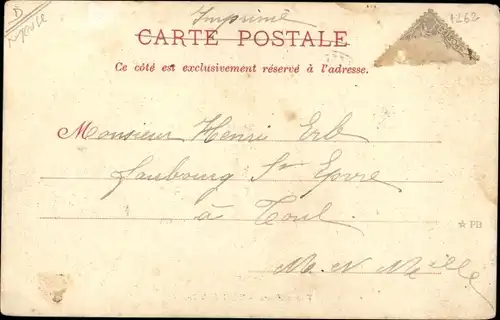 D
Imprimé
1262
CARTE POSTALE
Ce côté est exclusivement réservé à l'adresse.
Monsieur Henri Erb
faubourg St Epvre
à Toul
☆ PB
M. et M.elle